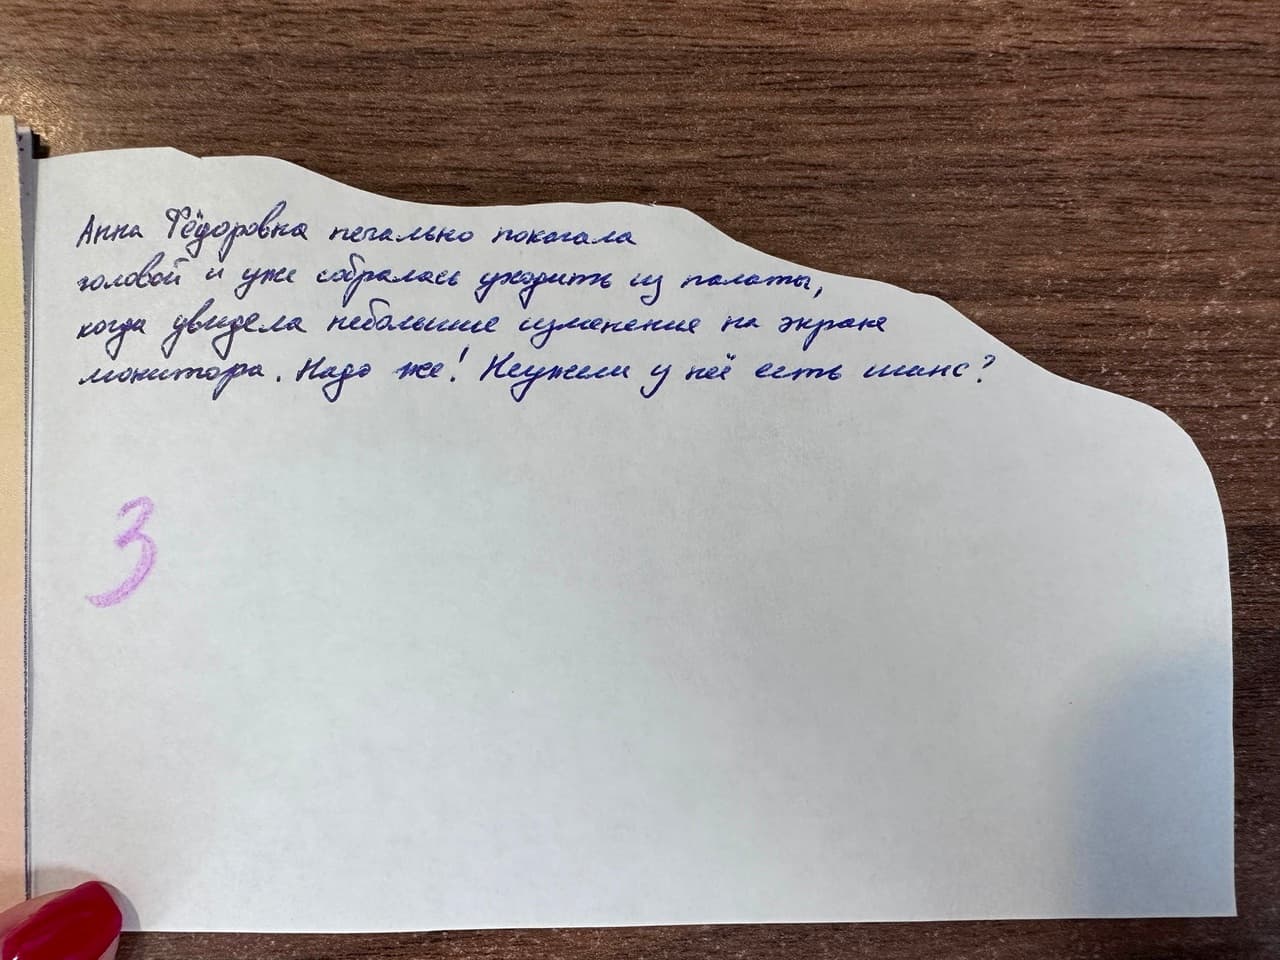 Анна Фёдоровна печально покачала
головой и уже собралась уходить из палаты,
когда увидела небольшие изменение на экране
монитора. Надо же! Неужели у неё есть шанс?
3